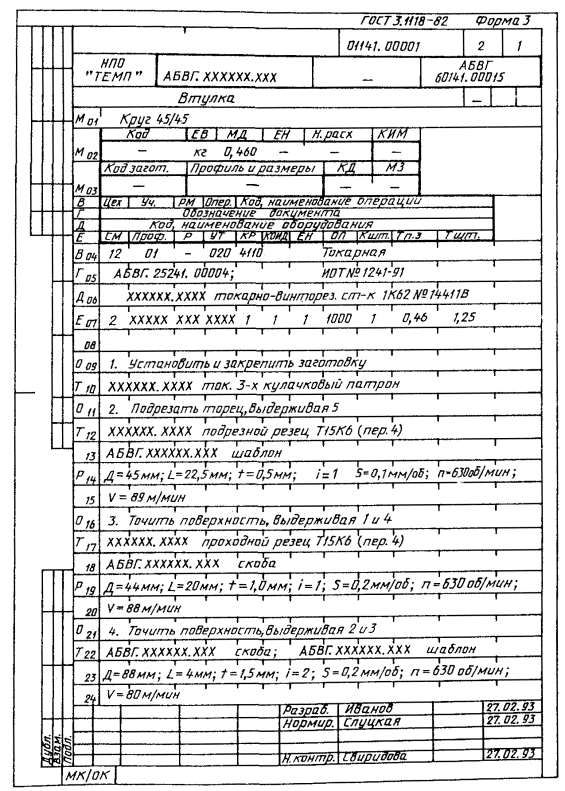 ГОСТ 3.1118-82 Форма 3
01141.00001 2 1
НПО "ТЕМП" АБВГ.XXXXXX.XXX — АБВГ 60141.00015
Втулка —
М 01 Круг 45/45
Код ЕВ МД ЕН Н.расх КИМ
М 02 — кг 0,460 — — —
Код загот. Профиль и размеры КД МЗ
М 03 — — — —
В Цех Уч. РМ Опер. Код, наименование операции
Г Обозначение документа
Д Код, наименование оборудования
Е СМ Проф. Р УТ КР КОИД ЕН ОП Кшт. Тп.з Тшт.
В 04 12 01 — 020 4110 Токарная
Г 05 АБВГ. 25241. 00004; ИОТ № 1241-91
Д 06 XXXXXX.XXXX токарно-винторез. ст-к 1К62 № 14411В
Е 07 2 XXXXX XXX XXXX 1 1 1 1000 1 0,46 1,25
08
О 09 1. Установить и закрепить заготовку
Т 10 XXXXXX.XXXX ток. 3-х кулачковый патрон
О 11 2. Подрезать торец, выдерживая 5
Т 12 XXXXXX.XXXX подрезной резец Т15К6 (пер. 4)
13 АБВГ.XXXXXX.XXX шаблон
Р 14 Д=45мм; L=22,5мм; t=0,5мм; i=1 S=0,1мм/об; n=630об/мин;
15 V=89 м/мин
О 16 3. Точить поверхность, выдерживая 1 и 4
Т 17 XXXXXX.XXXX проходной резец Т15К6 (пер. 4)
18 АБВГ.XXXXXX.XXX скоба
Р 19 Д=44мм; L=20мм; t=1,0мм; i=1; S=0,2мм/об; n=630 об/мин;
20 V=88м/мин
О 21 4. Точить поверхность, выдерживая 2 и 3
Т 22 АБВГ.XXXXXX.XXX скоба; АБВГ.XXXXXX.XXX шаблон
23 Д=88мм; L=4мм; t=1,5мм; i=2; S=0,2мм/об; n=630 об/мин;
24 V=80м/мин
Разраб. Иванов 27.02.93
Нормир. Слуцкая 27.02.93
Дубл.
Взам.
Подл.
Н.контр. Свиридова 27.02.93
МК/ОК